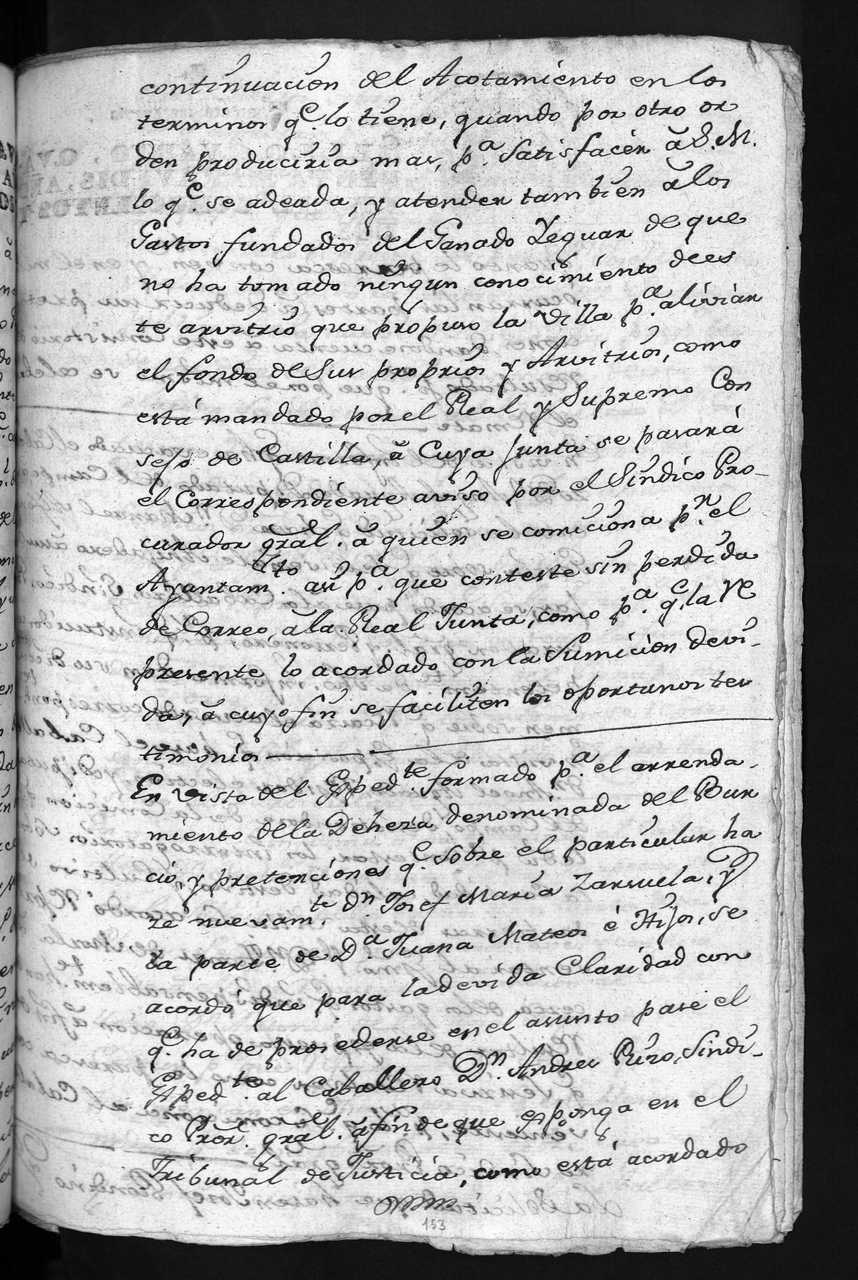 continuacion del Acotamiento en los
terminos q.e lo tiene, quando por otro or
den produciria mas, p.a satisfacer â S. M.
lo q.e se adeada, y atender tambien â los
Gastos fundados del Ganado Yeguar de que
no ha tomado ningun conocimiento de es
te arvitrio que propuso la Villa p.a aliviar
el fondo de Sus proprios y Arvitrios, como
está mandado por el Real y Supremo Con
sejo de Castilla, â Cuya Junta se pasará
el Correspondiente aviso por el Sindico Pro-
curador gral. â quien se comiciona p.r el
Ayuntam.to asi p.a que conteste sin perdida
de Correo, â la Real Junta, como p.a q.e la
presente lo acordado con la Sumicion devi-
da, â cuyo fin se faciliten los oportunos tes
timonios
En vista del Exped.te formado p.a el arrenda-
miento de la Dehesa denominada del Bur
cio, y pretenciones q.e sobre el particular ha
ze nuevam.te D.n Josef Maria Zarsuela, y
la parte de D.a Juana Mateos é Hijos, se
acordó que para la devida Claridad con
q.e ha de procederse en el asunto pase el
Exped.te al Caballero D.n Andres Puro, Sindi-
co Pror. gral. â fin de que exponga en el
Tribunal de Justicia, como está acordado
153